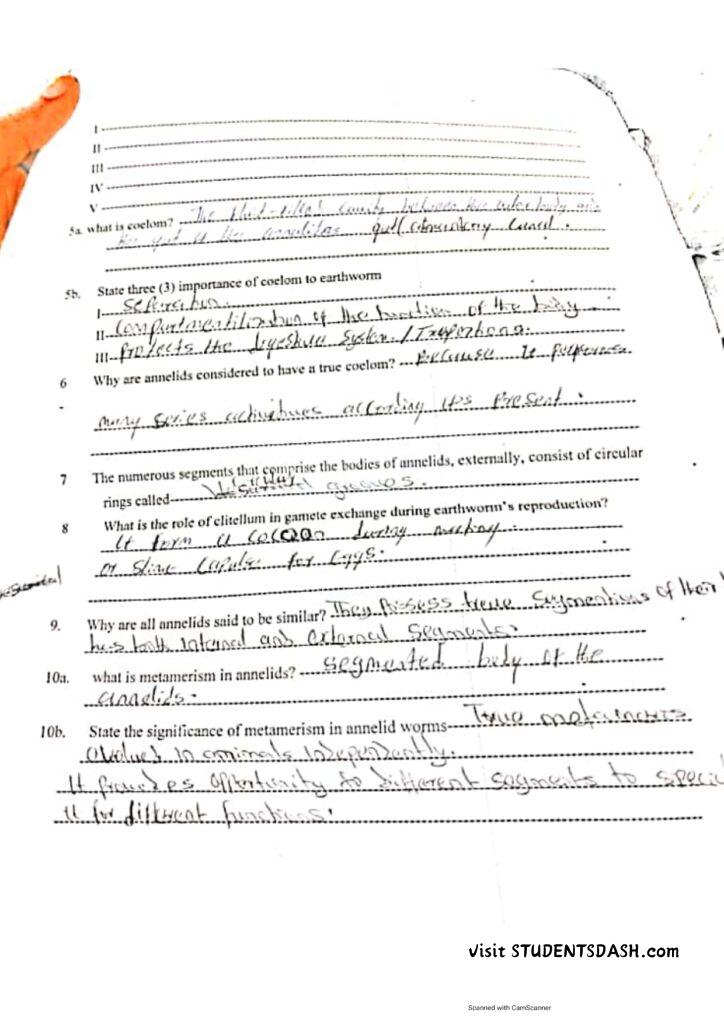 I
II
III
IV
V
5a. what is coelom? The fluid-filled cavity between the outer body and
the gut of the annelidas gut/alimentary canal.
5b. State three (3) importance of coelom to earthworm
I Seperation.
II Compartmentilization of the bodies of the body
III Protects the digestive system /
6 Why are annelids considered to have a true coelom? Because it performes
many series activities according its present.
7 The numerous segments that comprise the bodies of annelids, externally, consist of circular
rings called grooves.
8 What is the role of clitellum in gamete exchange during earthworm's reproduction?
It form a cocoon during meeting
or slime capsule for eggs.
9. Why are all annelids said to be similar? They Possess true Segmentions of their
has both internal and external segments.
10a. what is metamerism in annelids? segmented body of the
annelids.
10b. State the significance of metamerism in annelid worms True
evolves in animals independantly.
It provides opportunity to different segments to speci
it for different functions.
Visit STUDENTSDASH.com
Scanned with CamScanner